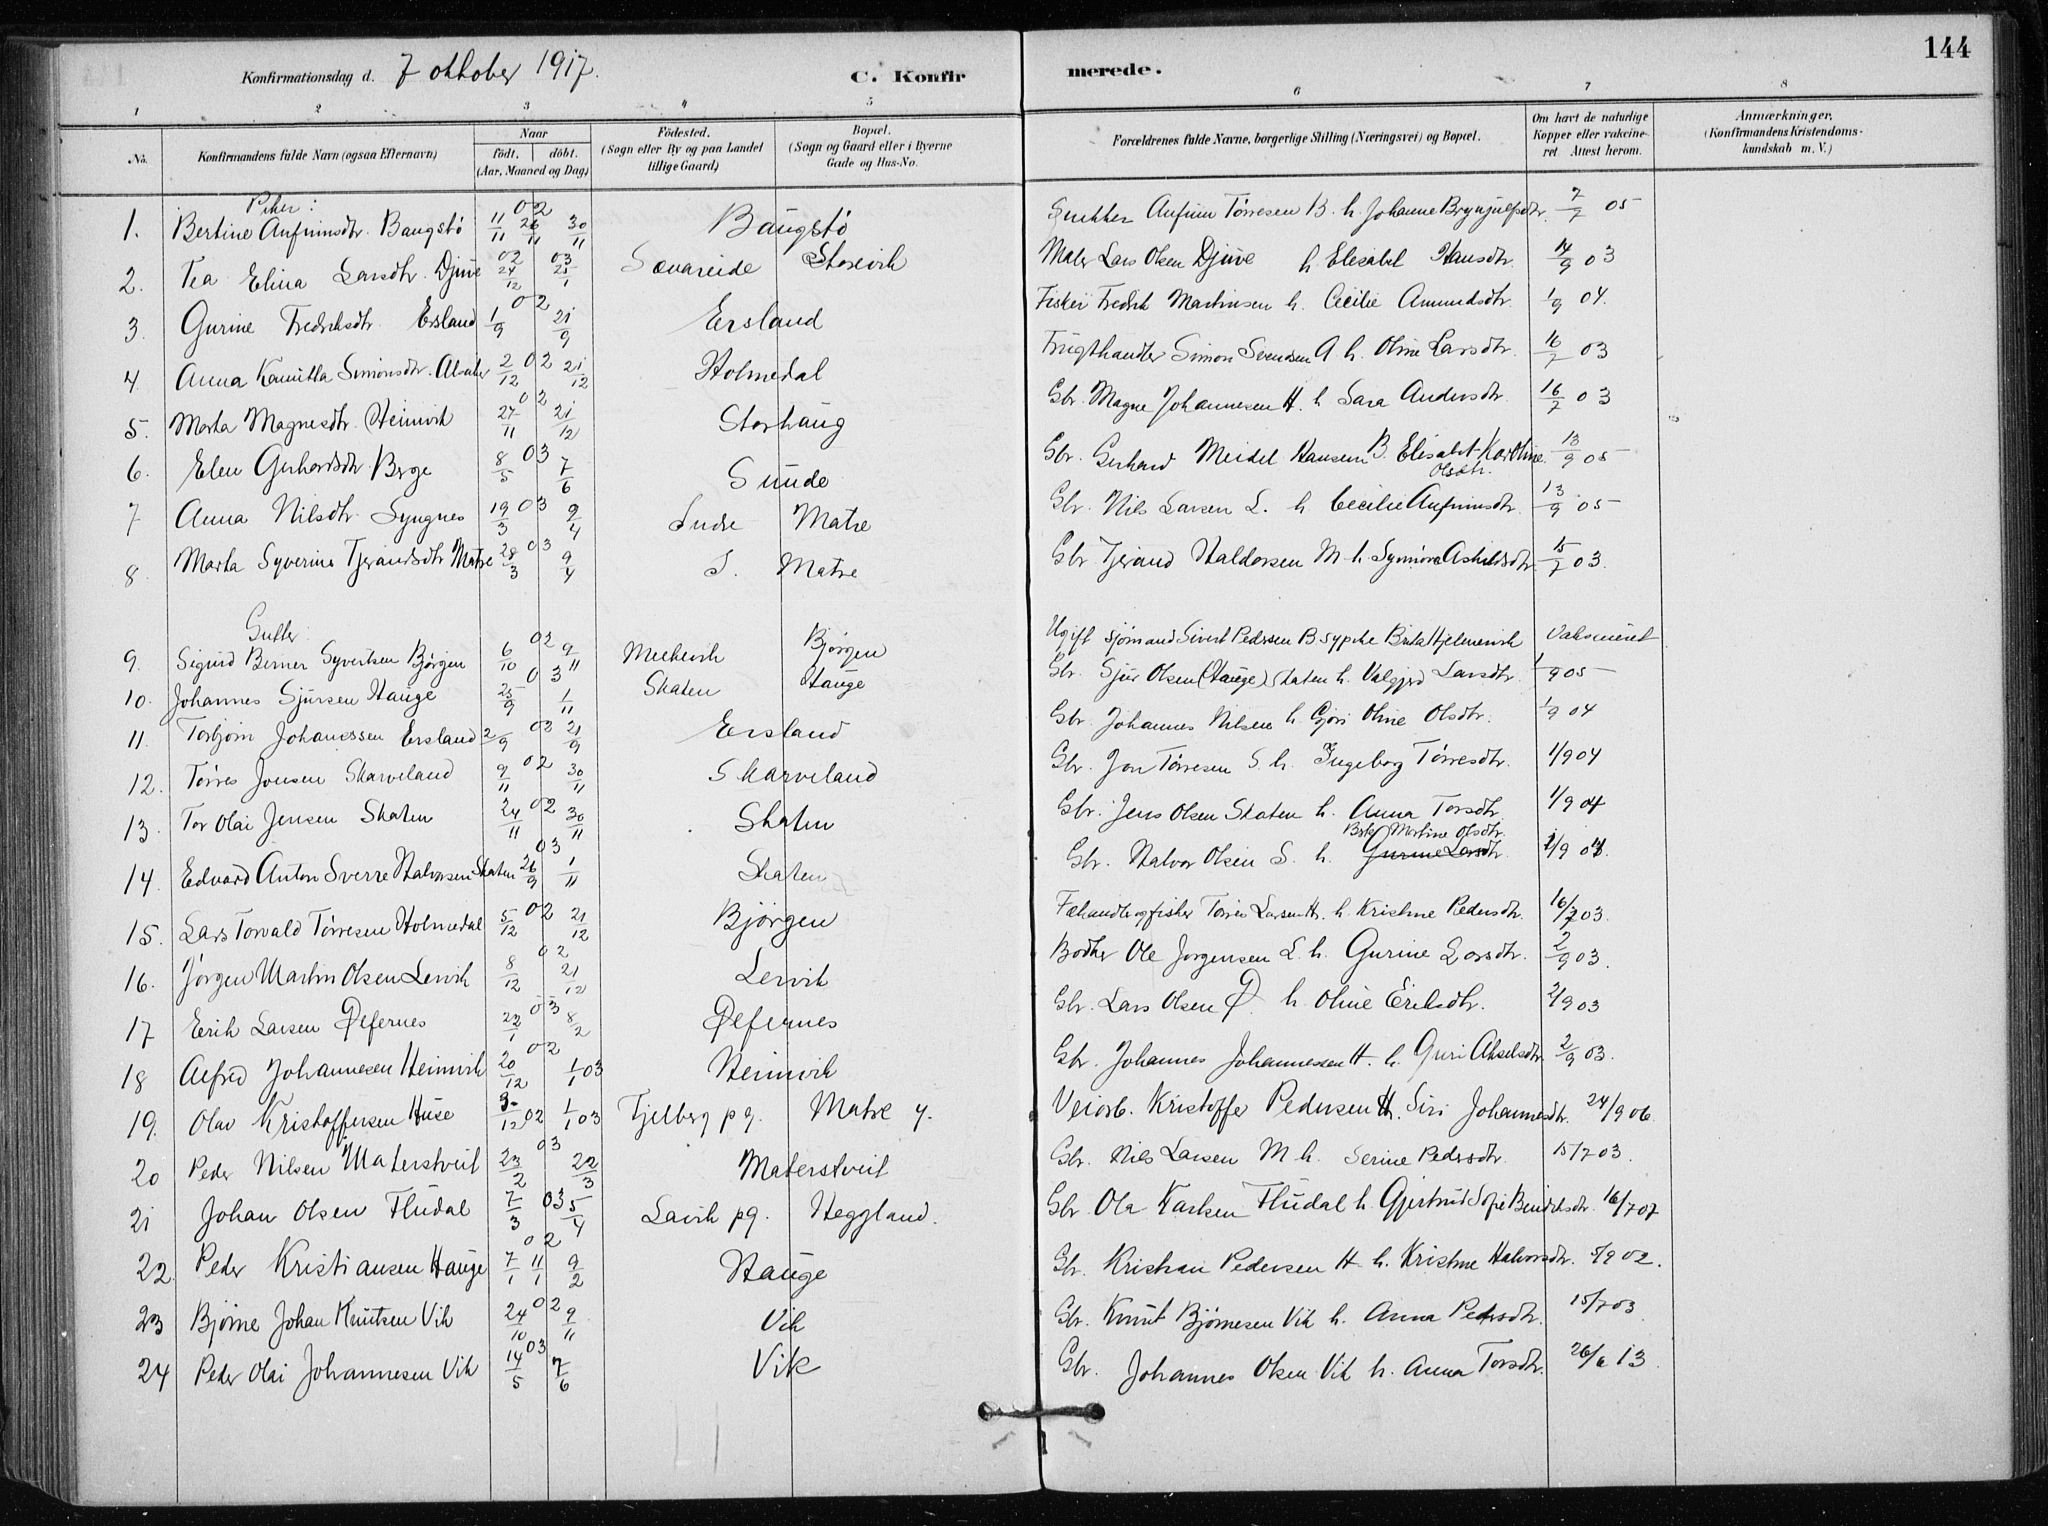 144
Konfirmationsdag d. 7 oktober 1917.
C. Konfirmerede.
1 2 3 4 5 6 7 8
No. Konfirmandens fulde Navn (ogsaa Efternavn) Naar født. døbt. (Aar, Maaned og Dag) Fødested. (Sogn eller By og paa Landet tillige Gaard) Bopæl. (Sogn og Gaard eller i Byerne Gade og Hus-No. Forældrenes fulde Navne, borgerlige Stilling (Næringsvei) og Bopæl. Om havt de naturlige Kopper eller vakcineret Attest herom. Anmærkninger, (Konfirmandens Kristendomskundskab m. V.)
Piker:
1. Bertine Anfinnsdtr. Baugstø 02 26/11 30/11 Baugstø Snekker Anfinn Tørresen B. h. Johanne Brynjulfsdtr. 7/7 05
2. Tea Elina Larsdtr. Djuve 02 24/12 03 21/1 Sævareide Storevik Maler Lars Olsen Djuve h. Elesabet Hansdtr. 14/9 03
3. Gurine Fredriksdtr. Ersland 1/9 02 21/9 Ersland Fisker Fredrik Martinsen h. Cecilie Amundsdtr. 1/9 04.
4. Anna Kamilla Simonsdtr. 2/12 02 21/12 Holmedal Frugthandler Simon Svendsen A h. Oline Larsdtr. 16/7 03
5. Marta Magnesdtr. Heimvik 27/11 02 21/12 Storhaug Gbr. Magne Johannesen H. h Sara Andersdtr. 16/7 03
6. Elen Gerhardsdtr Berge 8/5 03 7/6 Sunde Gbr. Gerhard Meidel Hansen B. Elisabet Karoline Olsdtr. 13/9 05
7 Anna Nilsdtr. Lyngnes 19/3 03 9/4 Indre Matre Gbr. Nils Larsen L. h Cecilie Anfinnsdtr. 13/9 05
8 Marta Syverine Tjerandsdtr Matre 28/3 03 9/4 I. Matre Gbr Tjerand Haldorsen M h Synnøva Askildsdtr. 15/7 03.
Gutter
9. Sigurd Berner Syvertsen Bjørgen 6/10 02 9/11 Mechevik Bjørgen Ugift sjømand Sivert Pedersen B sypike Brita Hjelmevik Vaksineret
10. Johannes Sjursen Hauge 25/9 03 1/11 Skaten Hauge Gbr. Sjur Olsen (Hauge) Skaten h. Valgjerd Larsdtr. 1/9 05
11. Torbjørn Johanessen Ersland 2/9 03 21/9 Ersland Gbr. Johannes Nilsen h. Gjøri Oline Olsdtr. 1/9 04
12. Tørres Jonsen Skarveland 9/11 02 30/11 Skarveland Gbr. Jon Tørresen S. h. Ingeborg Tørresdtr. 1/9 04
13. Tor Olai Jensen Skaten 24/11 02 30/11 Skaten Gbr. Jens Olsen Skaten h. Anna Torsdtr. 1/9 04
14. Edvard Anton Sverre Halvorsen Skaten 26/9 03 1/11 Skaten Gbr. Halvor Olsen S. h. Gurine Larsdtr. Martine Olsdtr. 1/9
15. Lars Torvald Tørresen Holmedal 5/12 02 21/12 Bjørgen Fehandler og fisker Tørres Larsen H. h. Kristine Pedersdtr. 16/7 03.
16. Jørgen Martin Olsen Lervik 8/12 02 21/12 Lervik Bødker Ole Jørgensen L. h. Gurine Larsdtr. 2/9 03.
17 Erik Larsen Øfernes 22/1 03 8/2 Øfernes Gbr. Lars Olsen Ø. h. Oline Eriksdtr. 2/9 03
18 Alfred Johannesen Heimvik 20/12 02 1/1 03 Heimvik Gbr. Johannes Johannessen H. h. Guri Akselsdtr. 2/9 03.
19. Olav Kristoffersen Huse 9/12 02 1/1 03 Fjelberg pg. Matre y. Veiarb. Kristoffer Pedersen H. Siri Johannesdtr. 24/9 06.
20 Peder Nilsen Materstveit 23/2 03 22/3 Materstveit Gbr. Nils Larsen M h. Serine Pedersdtr. 15/7 03.
21 Johan Olsen Fludal 7/3 03 5/4 Lavik pg. Heggland. Gbr. Ola Fludal h. Gjertrud Sofie 16/7 07
22. Peder Kristiansen Hauge 7/1 11/1 02 9/2 Hauge Gbr. Kristian Pedersen H. h. Kristine Halvorsdtr. 5/9 02.
23 Bjørne Johan Knutsen Vik 24/10 02 9/11 Vik Gbr. Knut Bjørnesen Vik h. Anna Pedersdtr. 15/7 03.
24 Peder Olai Johannesen Vik 14/5 03 7/6 Vik Gbr. Johannes Olsen Vik h. Anna Torsdtr. 26/6 13